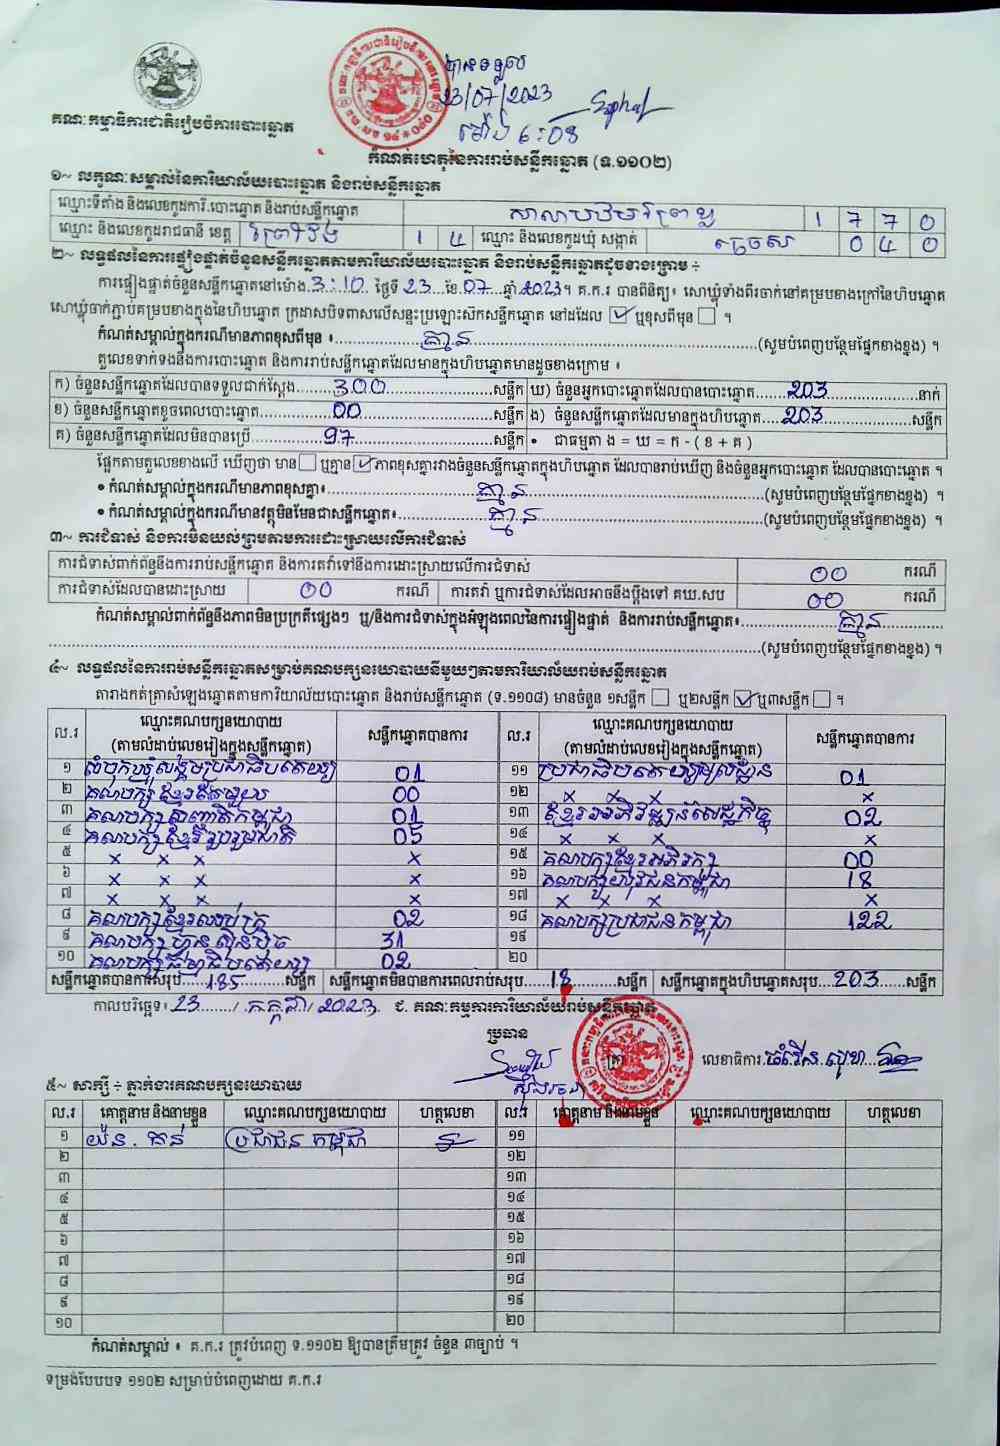 បានទទួល
23/07/2023
ម៉ោង 6:08
គណៈកម្មាធិការជាតិរៀបចំការបោះឆ្នោត
កំណត់ហេតុនៃការរាប់សន្លឹកឆ្នោត (ទ.១១០២)
១~ លក្ខណៈសម្គាល់នៃការិយាល័យបោះឆ្នោត និងរាប់សន្លឹកឆ្នោត
ឈ្មោះទីតាំង និងលេខកូដការិ.បោះឆ្នោត និងរាប់សន្លឹកឆ្នោត សាលាបឋម 1 7 7 0
ឈ្មោះ និងលេខកូដរាជធានី ខេត្ត ព្រៃវែង 1 4 ឈ្មោះ និងលេខកូដឃុំ សង្កាត់ 0 4 0
២~ លទ្ធផលនៃការផ្ទៀងផ្ទាត់ចំនួនសន្លឹកឆ្នោតតាមការិយាល័យបោះឆ្នោត និងរាប់សន្លឹកឆ្នោតដូចខាងក្រោម ÷
ការផ្ទៀងផ្ទាត់ចំនួនសន្លឹកឆ្នោតនៅម៉ោង 3:10 ថ្ងៃទី 23 ខែ 07 ឆ្នាំ 2023។ គ.ក.រ បានពិនិត្យ៖ សោឃ្លុំទាំងពីរចាក់នៅគម្របខាងក្រៅនៃហិបឆ្នោត
សោឃ្លុំចាក់ភ្ជាប់គម្របខាងក្នុងនៃហិបឆ្នោត ក្រដាសបិទពាសលើសន្ទះប្រឡោះសិកសន្លឹកឆ្នោត នៅដដែល ☑ ឬខុសពីមុន ☐ ។
កំណត់សម្គាល់ក្នុងករណីមានភាពខុសពីមុន ៖ គ្មាន (សូមបំពេញបន្ថែមផ្នែកខាងខ្នង) ។
តួលេខទាក់ទងនឹងការបោះឆ្នោត និងការរាប់សន្លឹកឆ្នោតដែលមានក្នុងហិបឆ្នោតមានដូចខាងក្រោម ៖
ក) ចំនួនសន្លឹកឆ្នោតដែលបានទទួលជាក់ស្តែង 300 សន្លឹក ឃ) ចំនួនអ្នកបោះឆ្នោតដែលបានបោះឆ្នោត 203 នាក់
ខ) ចំនួនសន្លឹកឆ្នោតខូចពេលបោះឆ្នោត 00 សន្លឹក ង) ចំនួនសន្លឹកឆ្នោតដែលមានក្នុងហិបឆ្នោត 203 សន្លឹក
គ) ចំនួនសន្លឹកឆ្នោតដែលមិនបានប្រើ 97 សន្លឹក • ជាធម្មតា ង = ឃ = ក - ( ខ + គ )
ផ្អែកតាមតួលេខខាងលើ ឃើញថា មាន ☐ ឬគ្មាន ☑ ភាពខុសគ្នារវាងចំនួនសន្លឹកឆ្នោតក្នុងហិបឆ្នោត ដែលបានរាប់ឃើញ និងចំនួនអ្នកបោះឆ្នោត ដែលបានបោះឆ្នោត ។
• កំណត់សម្គាល់ក្នុងករណីមានភាពខុសគ្នា៖ គ្មាន (សូមបំពេញបន្ថែមផ្នែកខាងខ្នង) ។
• កំណត់សម្គាល់ក្នុងករណីមានវត្ថុមិនមែនជាសន្លឹកឆ្នោត៖ គ្មាន (សូមបំពេញបន្ថែមផ្នែកខាងខ្នង) ។
៣~ ការជំទាស់ និងការមិនយល់ព្រមតាមការដោះស្រាយលើការជំទាស់
ការជំទាស់ពាក់ព័ន្ធនឹងការរាប់សន្លឹកឆ្នោត និងការតវ៉ាទៅនឹងការដោះស្រាយលើការជំទាស់ 00 ករណី
ការជំទាស់ដែលបានដោះស្រាយ 00 ករណី ការតវ៉ា ឬការជំទាស់ដែលអាចនឹងប្តឹងទៅ គឃ.សប 00 ករណី
កំណត់សម្គាល់ពាក់ព័ន្ធនឹងភាពមិនប្រក្រតីផ្សេងៗ ឬ/និងការជំទាស់ក្នុងអំឡុងពេលនៃការផ្ទៀងផ្ទាត់ និងការរាប់សន្លឹកឆ្នោត៖ គ្មាន
(សូមបំពេញបន្ថែមផ្នែកខាងខ្នង) ។
៤~ លទ្ធផលនៃការរាប់សន្លឹកឆ្នោតសម្រាប់គណបក្សនយោបាយនីមួយៗតាមការិយាល័យរាប់សន្លឹកឆ្នោត
តារាងកត់ត្រាសំឡេងឆ្នោតតាមការិយាល័យបោះឆ្នោត និងរាប់សន្លឹកឆ្នោត (ទ.១១០៨) មានចំនួន ១សន្លឹក ☐ ឬ២សន្លឹក ☑ ឬ៣សន្លឹក ☐ ។
ល.រ ឈ្មោះគណបក្សនយោបាយ (តាមលំដាប់លេខរៀងក្នុងសន្លឹកឆ្នោត) សន្លឹកឆ្នោតបានការ ល.រ ឈ្មោះគណបក្សនយោបាយ (តាមលំដាប់លេខរៀងក្នុងសន្លឹកឆ្នោត) សន្លឹកឆ្នោតបានការ
១ សំបុកឃ្មុំសង្គមប្រជាធិបតេយ្យ 01 ១១ ប្រជាធិបតេយ្យមូលដ្ឋាន 01
២ គណបក្សខ្មែរតែមួយ 00 ១២ x x x x
៣ គណបក្សសញ្ជាតិកម្ពុជា 01 ១៣ ខ្មែរអភិវឌ្ឍន៍សេដ្ឋកិច្ច 02
៤ គណបក្សខ្មែររួបរួមជាតិ 05 ១៤ x x x x
៥ x x x x ១៥ គណបក្សខ្មែរអភិរក្ស 00
៦ x x x x ១៦ គណបក្សយុវជនកម្ពុជា 18
៧ x x x x ១៧ x x x x
៨ គណបក្សខ្មែរឈប់ក្រ 02 ១៨ គណបក្សប្រជាជនកម្ពុជា 122
៩ គណបក្សហ៊្វុនស៊ិនប៉ិច 31 ១៩
១០ គណបក្សធម្មាធិបតេយ្យ 02 ២០
សន្លឹកឆ្នោតបានការសរុប 185 សន្លឹក សន្លឹកឆ្នោតមិនបានការពេលរាប់សរុប 18 សន្លឹក សន្លឹកឆ្នោតក្នុងហិបឆ្នោតសរុប 203 សន្លឹក
កាលបរិច្ឆេទ៖ 23 / កក្កដា / 2023 ជ. គណៈកម្មការការិយាល័យរាប់សន្លឹកឆ្នោត
ប្រធាន
លេខាធិការ
៥~ សាក្សី ÷ ភ្នាក់ងារគណបក្សនយោបាយ
ល.រ គោត្តនាម និងនាមខ្លួន ឈ្មោះគណបក្សនយោបាយ ហត្ថលេខា ល.រ គោត្តនាម និងនាមខ្លួន ឈ្មោះគណបក្សនយោបាយ ហត្ថលេខា
១ ប្រជាជន កម្ពុជា ១១
២ ១២
៣ ១៣
៤ ១៤
៥ ១៥
៦ ១៦
៧ ១៧
៨ ១៨
៩ ១៩
១០ ២០
កំណត់សម្គាល់ ៖ គ.ក.រ ត្រូវបំពេញ ទ.១១០២ ឱ្យបានត្រឹមត្រូវ ចំនួន ៣ច្បាប់ ។
ទម្រង់បែបបទ ១១០២ សម្រាប់បំពេញដោយ គ.ក.រ